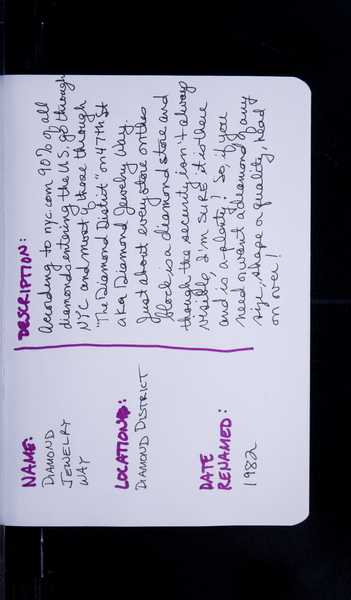 NAME:
DIAMOND
JEWELRY
WAY
LOCATION:
DIAMOND DISTRICT
DATE
RENAMED:
1982
DESCRIPTION:
According to nyc.com 90% of all
diamonds entering the U.S. go through
NYC and most of those through
"The Diamond District" on 47th St
aka Diamond Jewelry Way.
Just about every store on this
block is a diamond store and
though the security isn't always
visible, I'm SURE it is there
and is a plenty! So, if you
need or want a diamond of any
size, shape or quality, head
on over!